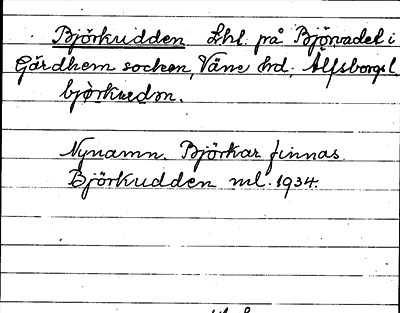 Björkudden Lhl. på Björvadet i
Gärdhem socken, Väne hd. Älfsborgs l.
björkudn.
Nynamn. Björkar finnas.
Björkudden ml. 1934.